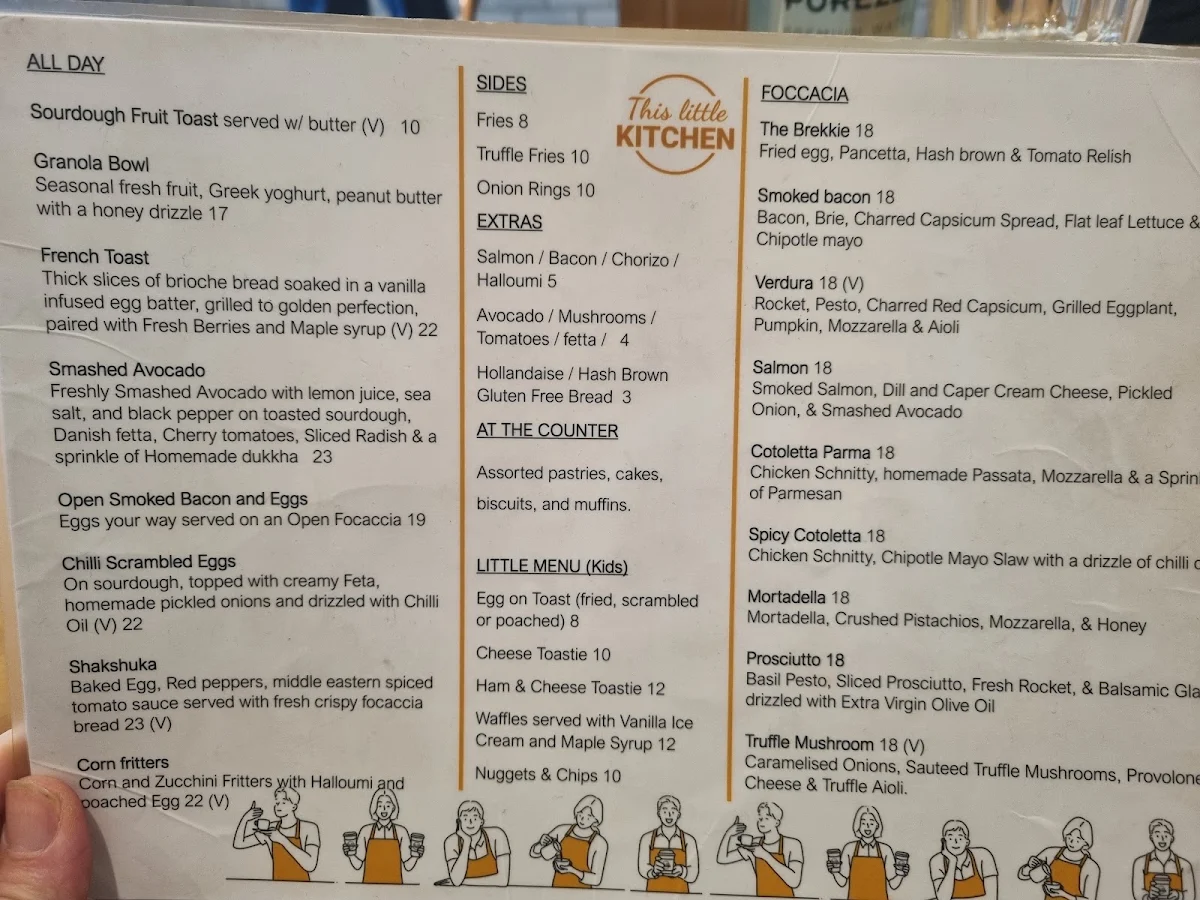 ALL DAY
Sourdough Fruit Toast served w/ butter (V) 10
Granola Bowl
Seasonal fresh fruit, Greek yoghurt, peanut butter
with a honey drizzle 17
French Toast
Thick slices of brioche bread soaked in a vanilla
infused egg batter, grilled to golden perfection,
paired with Fresh Berries and Maple syrup (V) 22
Smashed Avocado
Freshly Smashed Avocado with lemon juice, sea
salt, and black pepper on toasted sourdough,
Danish fetta, Cherry tomatoes, Sliced Radish & a
sprinkle of Homemade dukkha 23
Open Smoked Bacon and Eggs
Eggs your way served on an Open Focaccia 19
Chilli Scrambled Eggs
On sourdough, topped with creamy Feta,
homemade pickled onions and drizzled with Chilli
Oil (V) 22
Shakshuka
Baked Egg, Red peppers, middle eastern spiced
tomato sauce served with fresh crispy focaccia
bread 23 (V)
Corn fritters
Corn and Zucchini Fritters with Halloumi and
poached Egg 22 (V)
SIDES
Fries 8
Truffle Fries 10
Onion Rings 10
EXTRAS
Salmon / Bacon / Chorizo /
Halloumi 5
Avocado / Mushrooms /
Tomatoes / fetta / 4
Hollandaise / Hash Brown
Gluten Free Bread 3
AT THE COUNTER
Assorted pastries, cakes,
biscuits, and muffins.
LITTLE MENU (Kids)
Egg on Toast (fried, scrambled
or poached) 8
Cheese Toastie 10
Ham & Cheese Toastie 12
Waffles served with Vanilla Ice
Cream and Maple Syrup 12
Nuggets & Chips 10
This little
KITCHEN
FOCCACIA
The Brekkie 18
Fried egg, Pancetta, Hash brown & Tomato Relish
Smoked bacon 18
Bacon, Brie, Charred Capsicum Spread, Flat leaf Lettuce &
Chipotle mayo
Verdura 18 (V)
Rocket, Pesto, Charred Red Capsicum, Grilled Eggplant,
Pumpkin, Mozzarella & Aioli
Salmon 18
Smoked Salmon, Dill and Caper Cream Cheese, Pickled
Onion, & Smashed Avocado
Cotoletta Parma 18
Chicken Schnitty, homemade Passata, Mozzarella & a
of Parmesan
Spicy Cotoletta 18
Chicken Schnitty, Chipotle Mayo Slaw with a drizzle of chilli
Mortadella 18
Mortadella, Crushed Pistachios, Mozzarella, & Honey
Prosciutto 18
Basil Pesto, Sliced Prosciutto, Fresh Rocket, & Balsamic
drizzled with Extra Virgin Olive Oil
Truffle Mushroom 18 (V)
Caramelised Onions, Sauteed Truffle Mushrooms, Provolone
Cheese & Truffle Aioli.